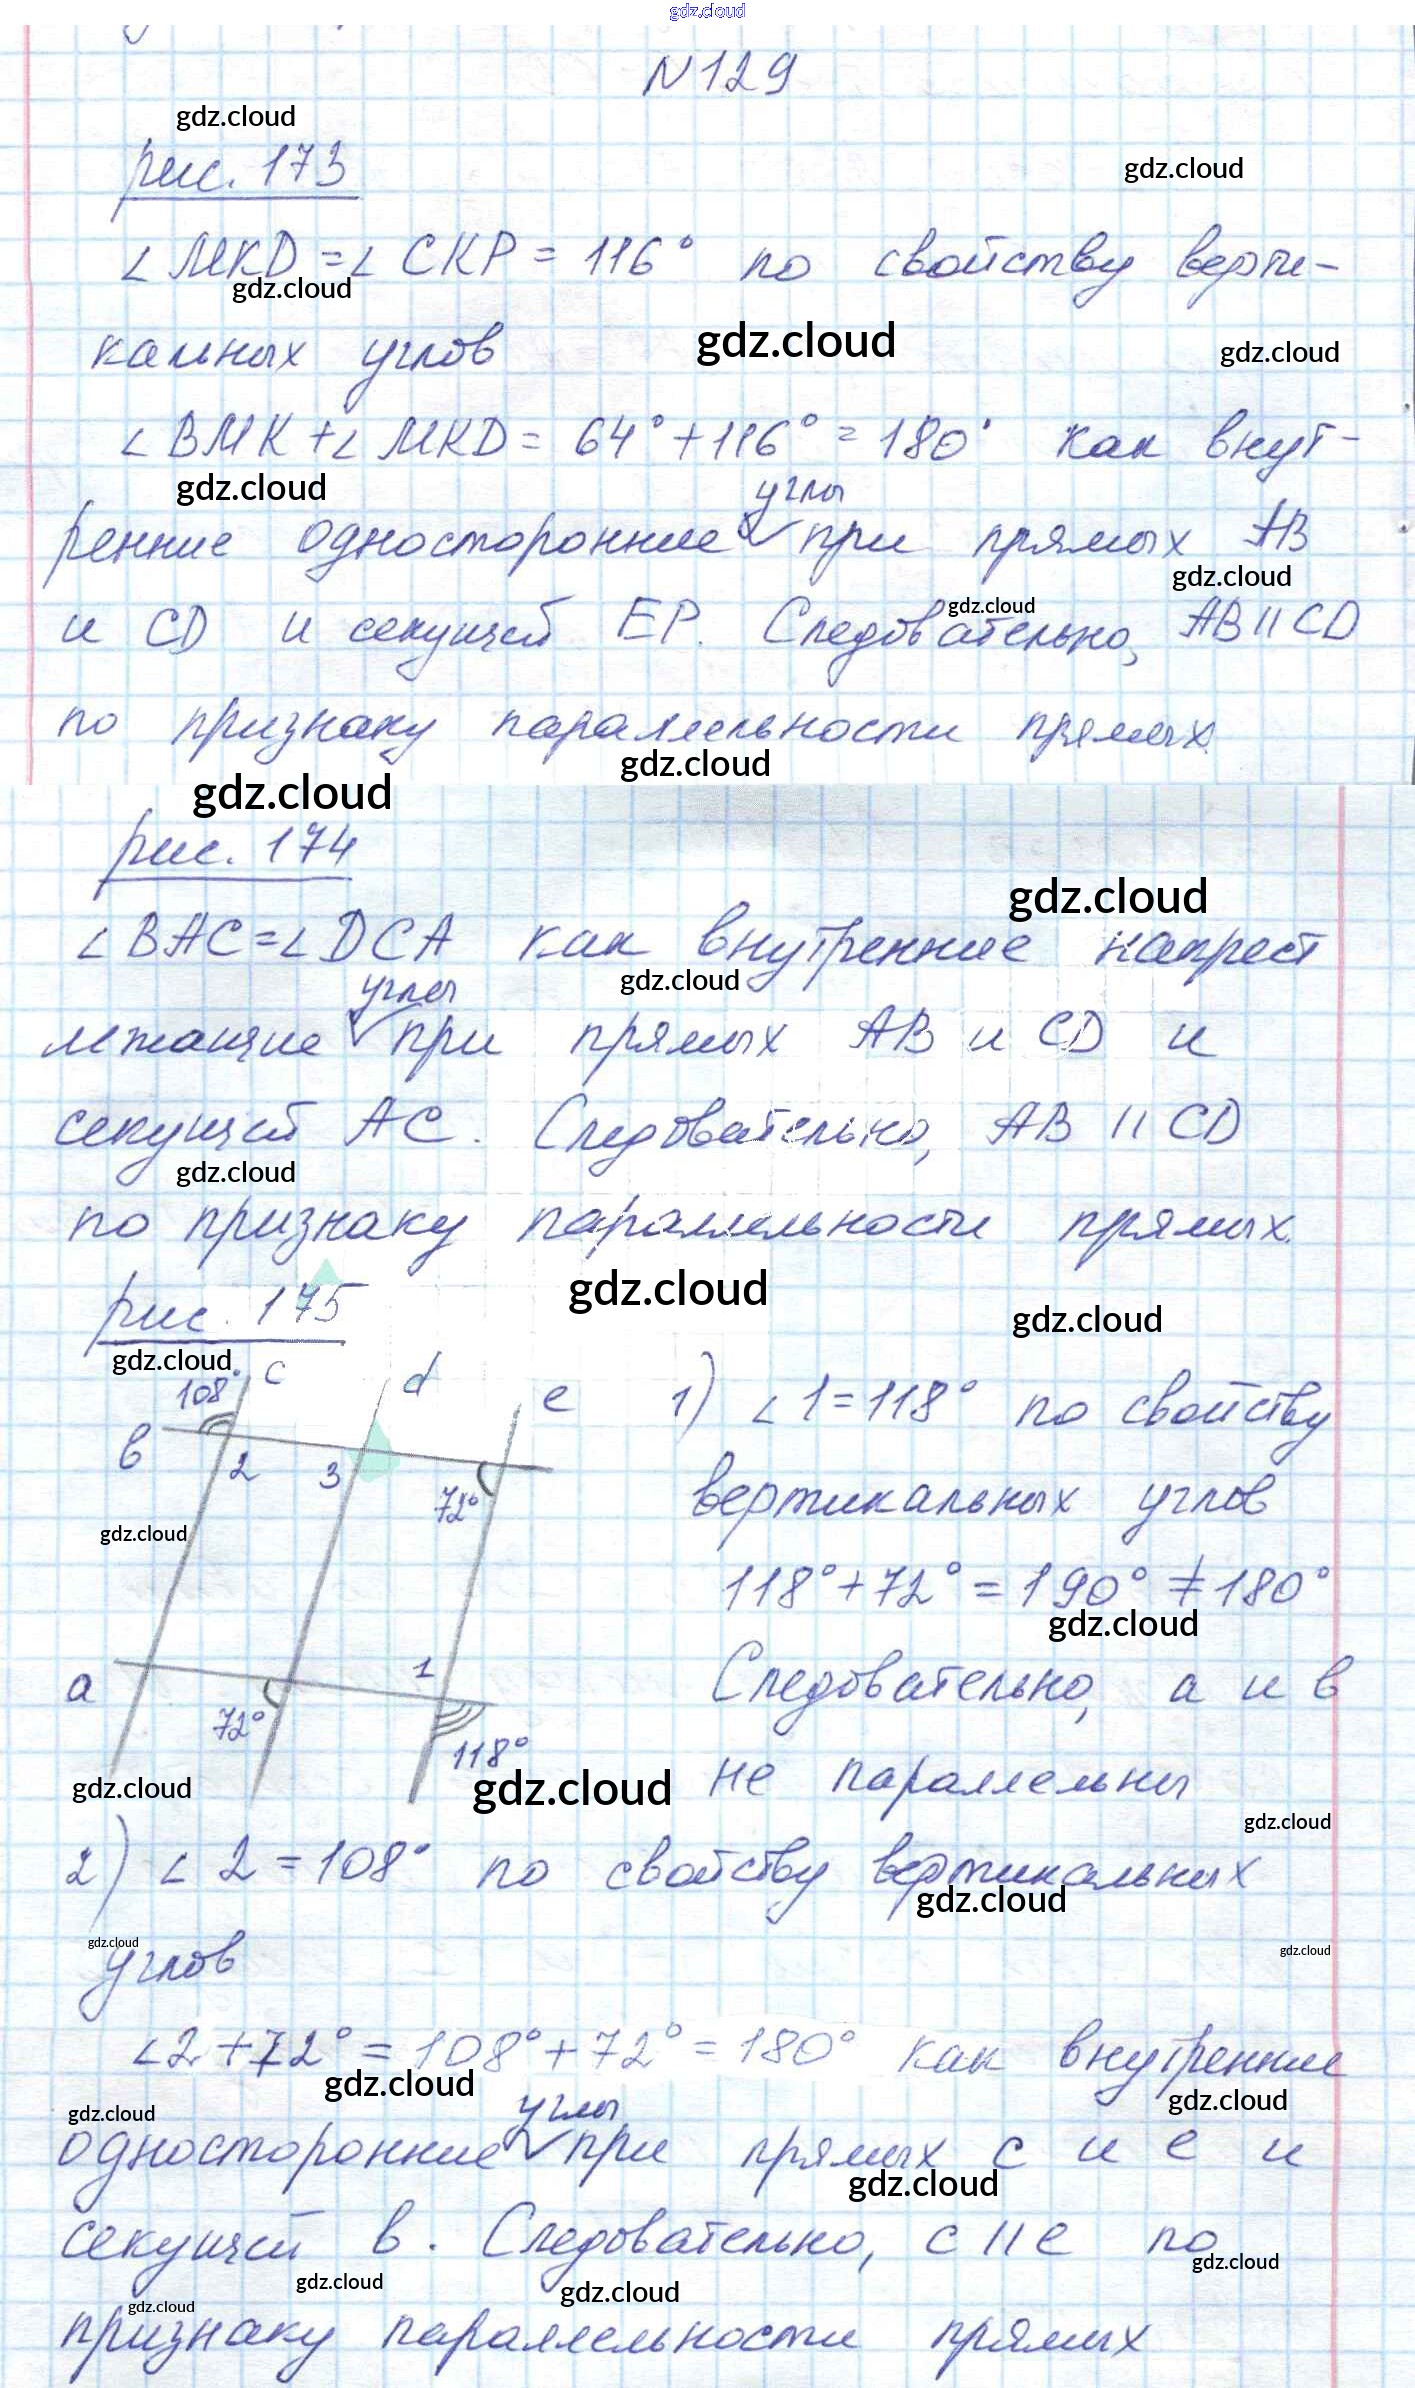 gdz.cloud
N129
gdz.cloud
рис. 173
gdz.cloud
∠MKD=∠CKP=116° по свойству верти-
gdz.cloud
кальных углов
gdz.cloud
gdz.cloud
∠BMK+∠MKD=64°+116°=180° как внут-
gdz.cloud
углы
ренние односторонние при прямых AB
gdz.cloud
gdz.cloud
и CD и секущей EP. Следовательно, AB||CD
по признаку параллельности прямых.
gdz.cloud
gdz.cloud
рис. 174
gdz.cloud
∠BAC=∠DCA как внутренние накрест
gdz.cloud
углы
лежащие при прямых AB и CD и
секущей AC. Следовательно, AB || CD
gdz.cloud
по признаку параллельности прямых.
gdz.cloud
рис. 175
gdz.cloud
gdz.cloud
108° c d e
b 2 3 72°
gdz.cloud
a 1
72° 118°
gdz.cloud
gdz.cloud
1) ∠1=118° по свойству
вертикальных углов
118°+72°=190°≠180°
gdz.cloud
Следовательно, a и b
не параллельны
gdz.cloud
2) ∠2=108° по свойству вертикальных
gdz.cloud
gdz.cloud
gdz.cloud
углов
∠2+72°=108°+72°=180° как внутренние
gdz.cloud
gdz.cloud
gdz.cloud
углы
односторонние при прямых c и e и
gdz.cloud
секущей b. Следовательно, c||e по
gdz.cloud
gdz.cloud
gdz.cloud
gdz.cloud
признаку параллельности прямых